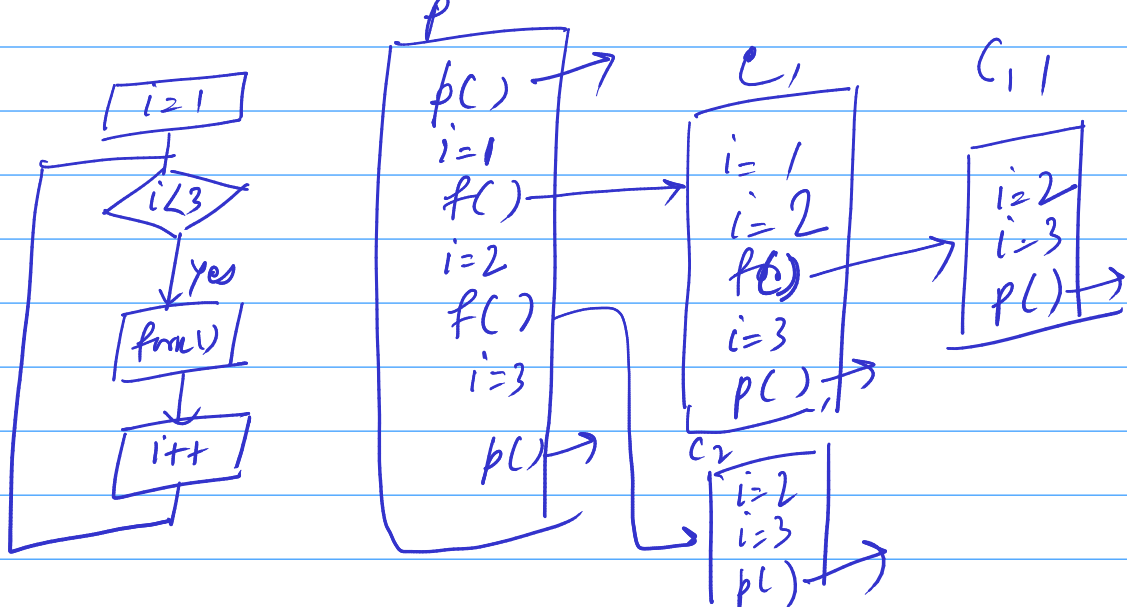 i=1
i<3
yes
fork()
i++
P
p()
i=1
f()
i=2
f()
i=3
p()
C1
i=1
i=2
f()
i=3
p()
C2
i=2
i=3
p()
C11
i=2
i=3
p()